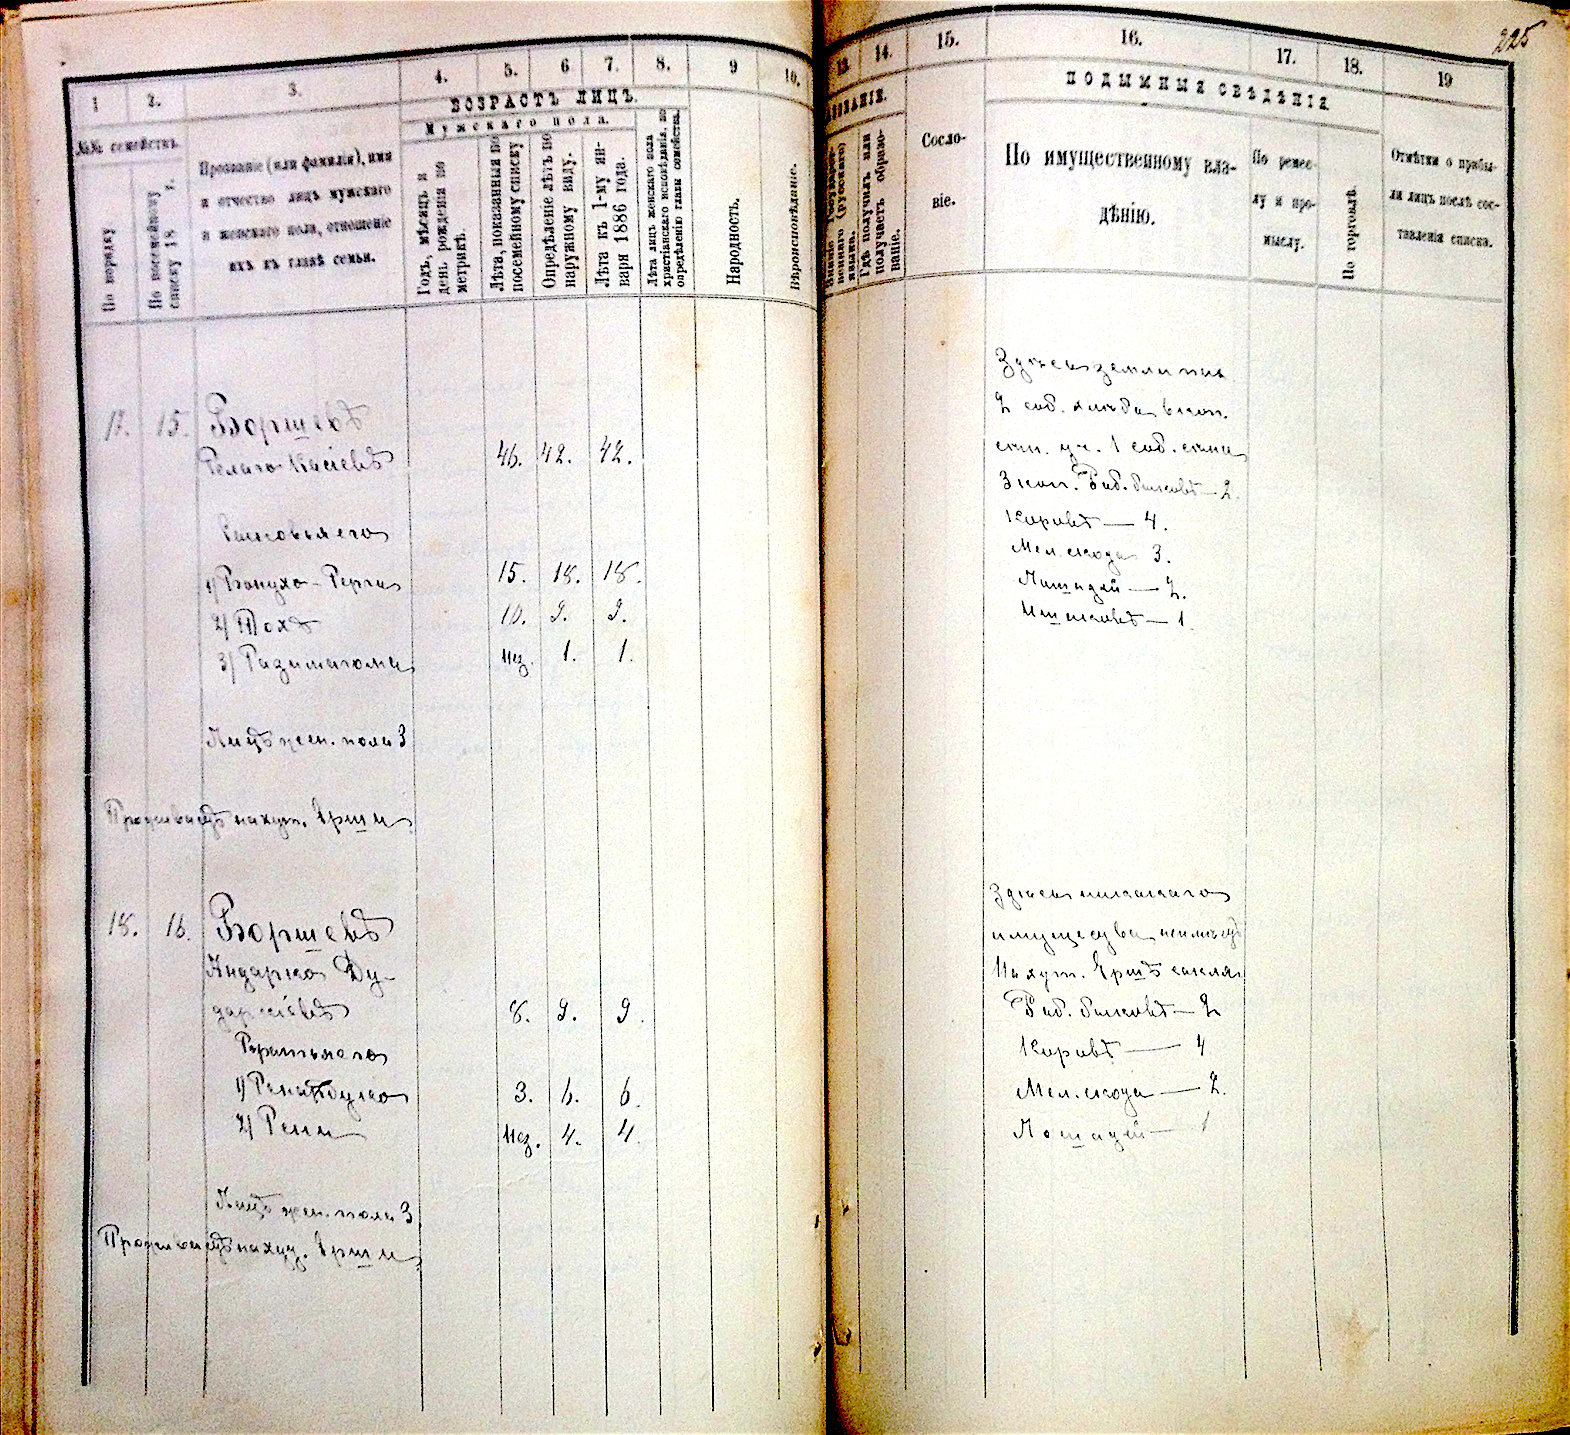 225
1
2.
3.
4.
5.
6
7.
8.
9
10.
13.
14.
15.
16.
17.
18.
19
№№ семействъ.
По порядку
По посемейному списку 18 г.
Прозваніе (или фамилія), имя
и отчество лицъ мужскаго
и женскаго пола, отношеніе
ихъ къ главѣ семьи.
ВОЗРАСТЪ ЛИЦЪ.
Мужскаго пола.
Годъ, мѣсяцъ и
день рожденія по
метрикѣ.
Лѣта, показанныя по
посемейному списку
Опредѣленіе лѣтъ по
наружному виду.
Лѣта къ 1-му ян-
варя 1886 года.
Лѣта лицъ женскаго пола
христіанскаго исповѣданія, по
опредѣленію главы семейства.
Народность.
Вѣроисповѣданіе.
Знаніе государст-
веннаго (русскаго)
языка.
Гдѣ получилъ или
получаетъ образо-
ваніе.
Сосло-
віе.
ПОДЫМНЫЯ СВѢДѢНІЯ.
По имущественному вла-
дѣнію.
По ремес-
лу и про-
мыслу.
По торговлѣ.
Отмѣтки о прибы-
ли лицъ послѣ сос-
тавленія списка.
17. 15. Боршевъ
46. 42. 42.
Сыновья его
15. 18. 18.
2) Тохъ 10. 9. 9.
3) Газимагома Нез. 1. 1.
Лицъ жен. пола 3
Проживаетъ на хут. Ерши
Здѣсь земли пах.
2 саб.
1 саб.
3 коп. Раб. быковъ — 2.
Коровъ — 4.
Мел. скота 3.
Лошадей — 2.
Ишаковъ — 1.
18. 16. Боршевъ
Андарко Ду-
даркіевъ 8. 9. 9.
Братья его
3. 6. 6.
Нез. 4. 4.
Лицъ жен. пола 3
Проживаетъ на хут. Ерши
Здѣсь никакого
имущества неимѣетъ
На хут. Ершъ сакля
Раб. быковъ — 2
Коровъ — 4
Мел. скота — 2.
Лошадей — 1